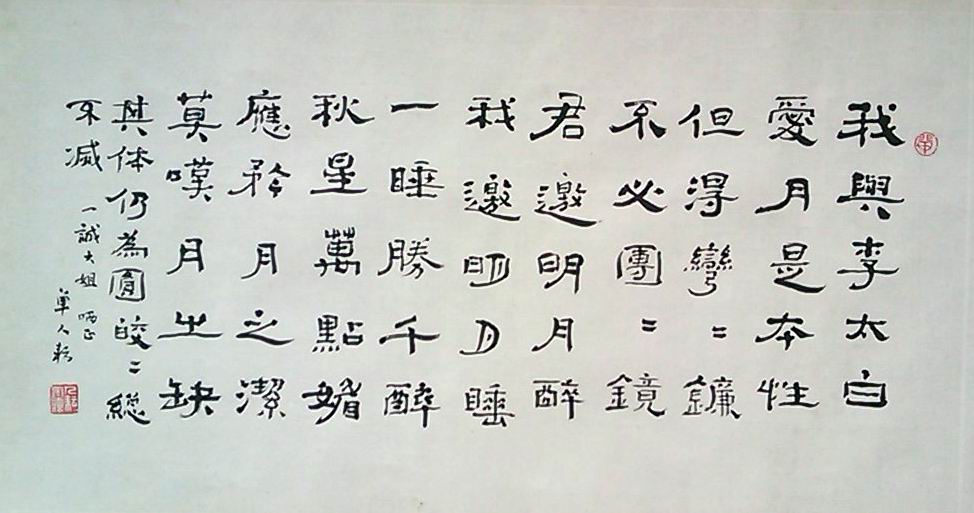 我與李太白
愛月是本性
但得彎〻鐮
不必團〻鏡
君邀明月醉
我邀明月睡
一睡勝千醉
秋星萬點
應矜月之潔
莫嘆月之缺
其体仍為圓皎〻總
不減
一誠大姐 哂正
單人耘